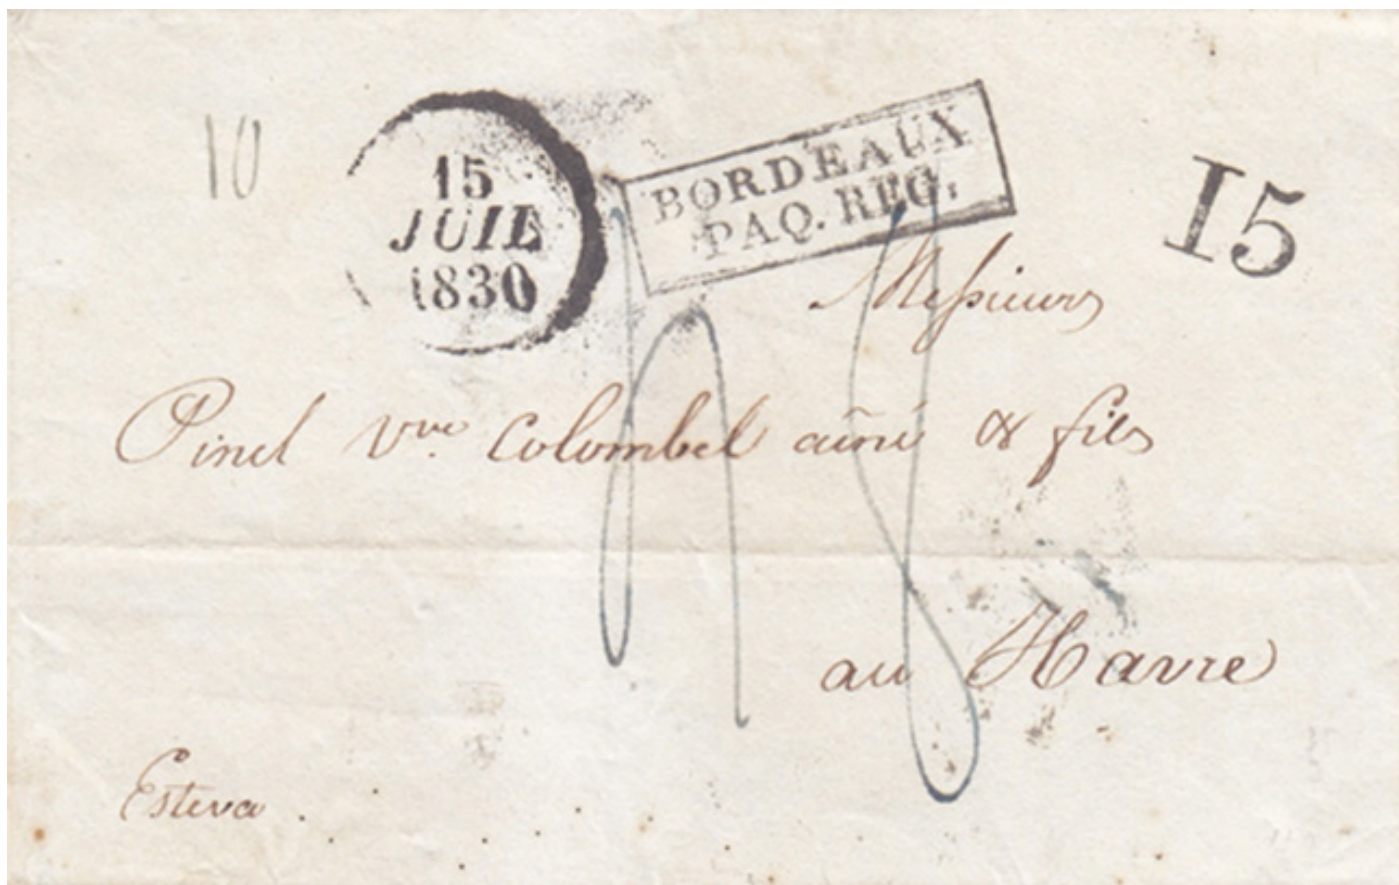 10
15
JUIL
1830
BORDEAUX
PAQ. REG.
15
Messieurs
Pinel Vve. Colombel ainé & fils
au Havre
Esteva.